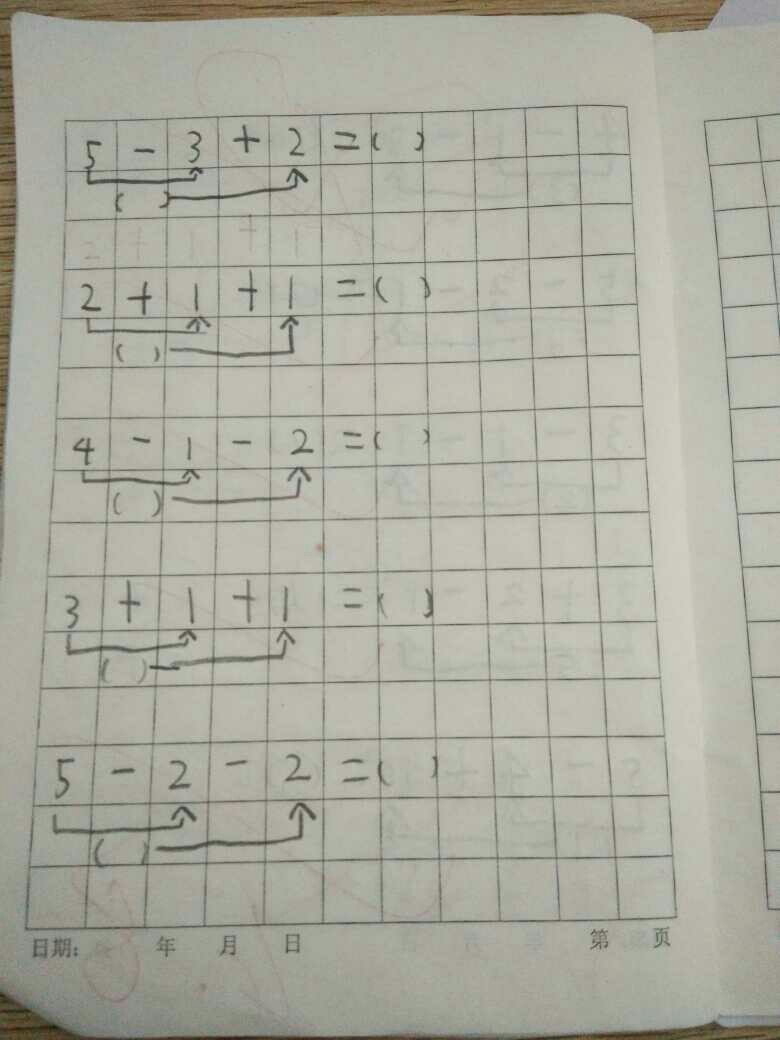 5 - 3 + 2 = ( )
( )
2 + 1 + 1 = ( )
( )
4 - 1 - 2 = ( )
( )
3 + 1 + 1 = ( )
( )
5 - 2 - 2 = ( )
( )
日期: 年 月 日 第 页